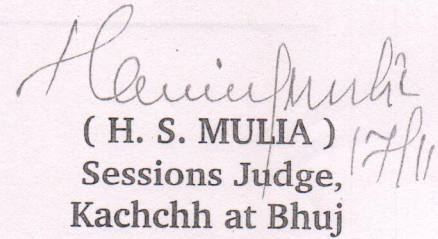 ( H. S. MULIA )
17/11
Sessions Judge,
Kachchh at Bhuj